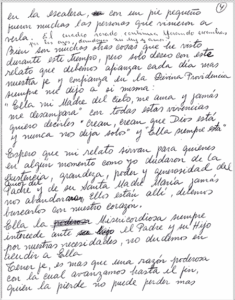 ④
en la escalera, con un pie pequeño
fueron muchas las personas que vinieron a
verla. El medio puede confirmar
Creen muchas otras cosas que he visto
durante este tiempo, pero solo deseo con este
relato que debemos afianzar cada día mas
nuestra fe y confianza en la Divina Providencia
siempre me dejo a si misma:
"Ella mi Madre del cielo, me ama y jamás
me desampara" con todas estas vivencias
quiero decirles "Crean, crean que Dios está
y nunca nos deja solos" y "Ella siempre está
Espero que mi relato sirvan para quienes
en algún momento como yo dudaron de la
existencia, grandeza, poder y generosidad del
amor del
Padre y de su Santa Madre María jamás
nos abandonan, Ellos están allí, debemos
buscarlos con nuestro corazón.
Ella la Misericordiosa siempre
intercede ante el Padre y su Hijo
por nuestras necesidades, no duden en
acudir a Ella
Tener fe, es mas que una razón poderosa
con la cual avanzamos hasta el fin,
quien la pierde no puede perder mas